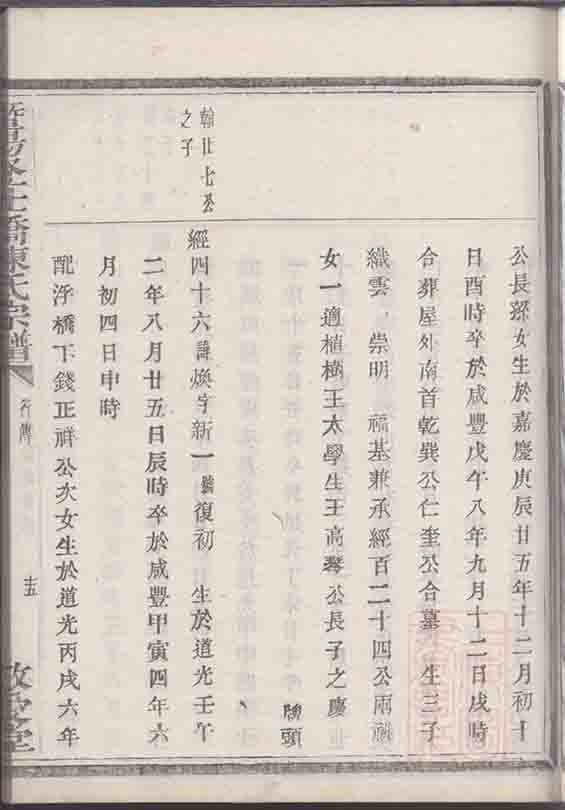 公長孫女生於嘉慶庚辰廿五年十二月初十
日酉時卒於咸豐戊午八年九月十二日戌時
合葬屋外南首乾巽公仁奎公合墓 生三子
織雲 崇明 福基兼承經百二十四公兩祧
女一適植樹王太學生王高琴公長子之慶
牌頭
翰廿七公
之子
經四十六諱煥字新一號復初 生於道光壬午
二年八月廿五日辰時卒於咸豐甲寅四年六
月初四日申時
配浮橋下錢正祥公次女生於道光丙戌六年
橋陳氏宗譜
行傳
十五
敦睦堂